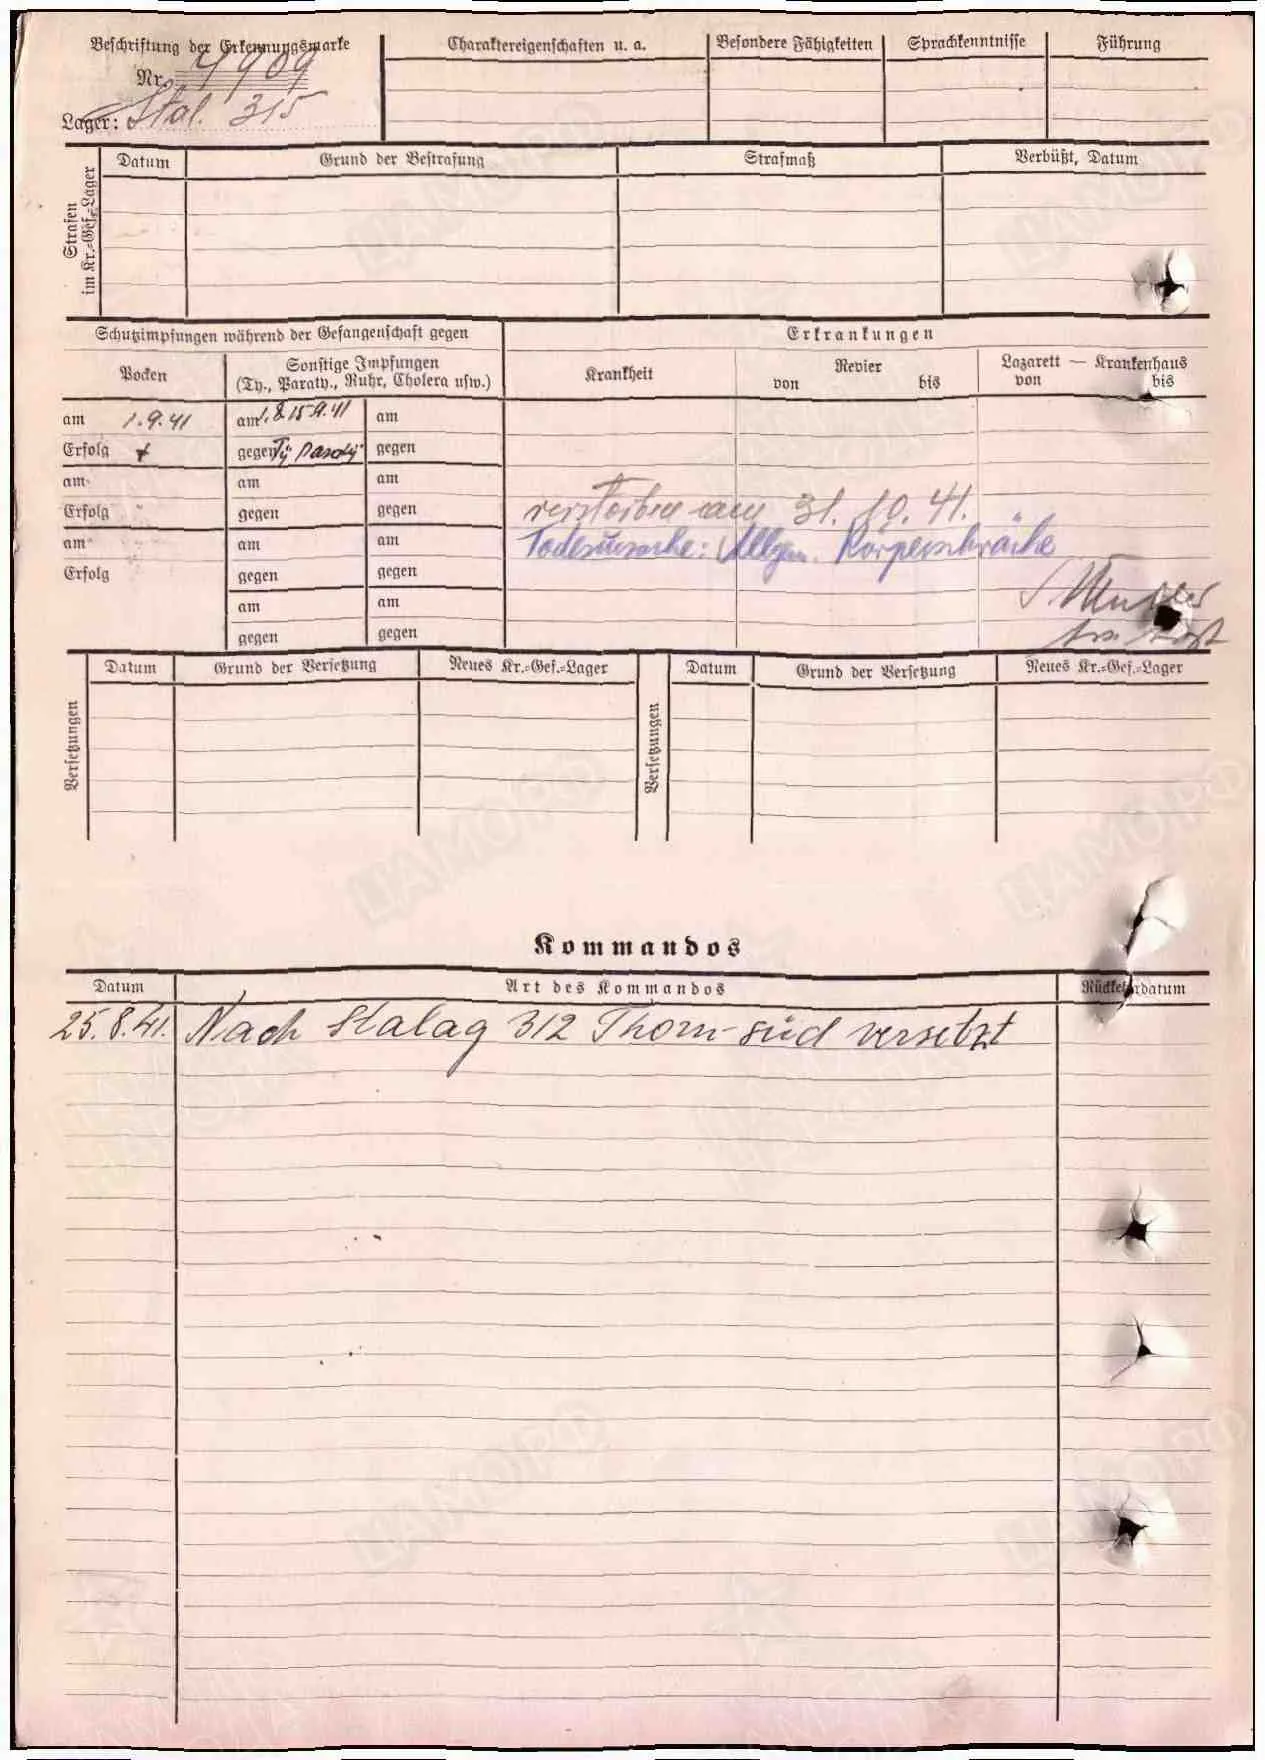 Beschriftung der Erkennungsmarke
Nr. 4909
Lager: Stal. 315
Charaktereigenschaften u. a.
Besondere Fähigkeiten
Sprachkenntnisse
Führung
Strafen im Kr.=Gef.=Lager
Datum
Grund der Bestrafung
Strafmaß
Verbüßt, Datum
Schutzimpfungen während der Gefangenschaft gegen
Erkrankungen
Pocken
Sonstige Impfungen
(Ty., Paraty., Ruhr, Cholera usw.)
Krankheit
Revier
von bis
Lazarett — Krankenhaus
von bis
am 1.9.41 am 15.9.41 am
Erfolg + gegen Ty gegen
am am am
Erfolg gegen gegen
verstorben am 31. 10. 41.
am am am
Todesursache: Allgem. Körperschwäche
Erfolg gegen gegen
am am
gegen gegen
Versetzungen
Datum
Grund der Versetzung
Neues Kr.=Gef.=Lager
Versetzungen
Datum
Grund der Versetzung
Neues Kr.=Gef.=Lager
Kommandos
Datum
Art des Kommandos
Rückkehrdatum
25.8.41. Nach Stalag 312 Thorn-süd versetzt
ЦАМО РФ